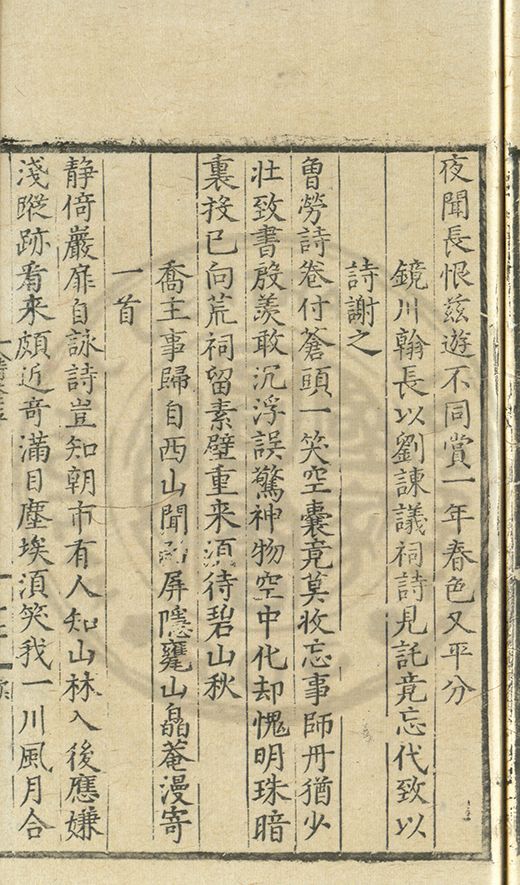 夜聞長恨茲遊不同賞一年春色又平分
鏡川翰長以劉諫議祠詩見託竟忘代致以
詩謝之
曾勞詩卷付蒼頭一笑空囊竟莫收忘事師丹猶少
壯致書殷羨敢沉浮誤驚神物空中化却愧明珠暗
裏投已向荒祠留素壁重来須待碧山秋
喬主事歸自西山聞屏隱甕山晶菴漫寄
一首
静倚巖扉自詠詩豈知朝市有人知山林入後應嫌
淺蹤跡看来頗近竒滿目塵埃湏笑我一川風月合